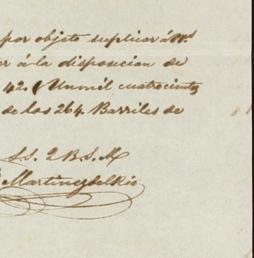 por objeto suplicar á Vs
er á la disposicion de
42. (Un mil cuatrocientos
de los 264. Barriles de
SS. Q B. S. M
Martinez del Rio